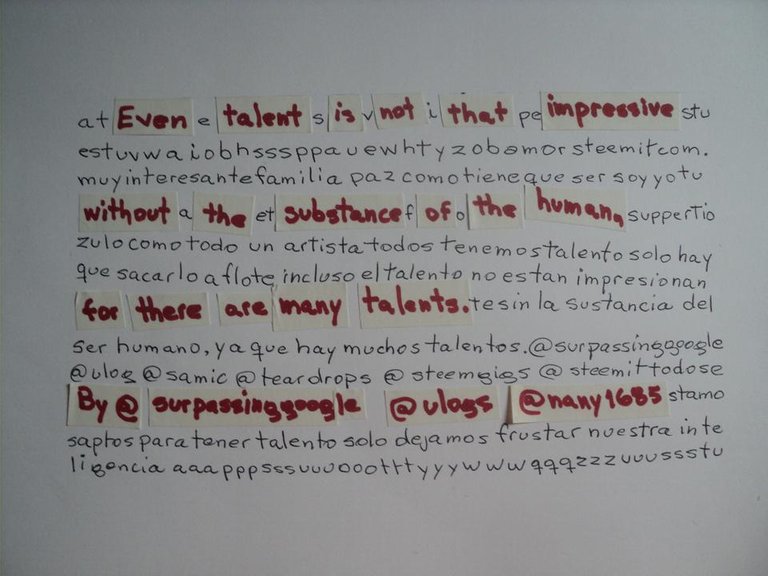 at Even e talent s is v not i that pe impressive stu
estuvwaiobhsssppauewhtyzobamorsteemitcom.
muyinteresantefamilia paz comotieneque ser soy yotu
without a the et substance f of o the human, suppertio
zulocomotodo un artistatodos tenemostalento solo hay
que sacarlo aflote, incluso eltalento no estan impresionan
for there are many talents. tesin la sustancia del
ser humano, ya que hay muchostalentos.@surpassinggoogle
@ulog @samic @teardrops @steemgigs @steemittodose
By @surpassinggoogle @ulogs @nany1685 stamo
saptos para tener talento solo dejamos frustar nuestra inte
ligencia aaapppsssuuuooottttyyywwwqqqzzzuuussstu